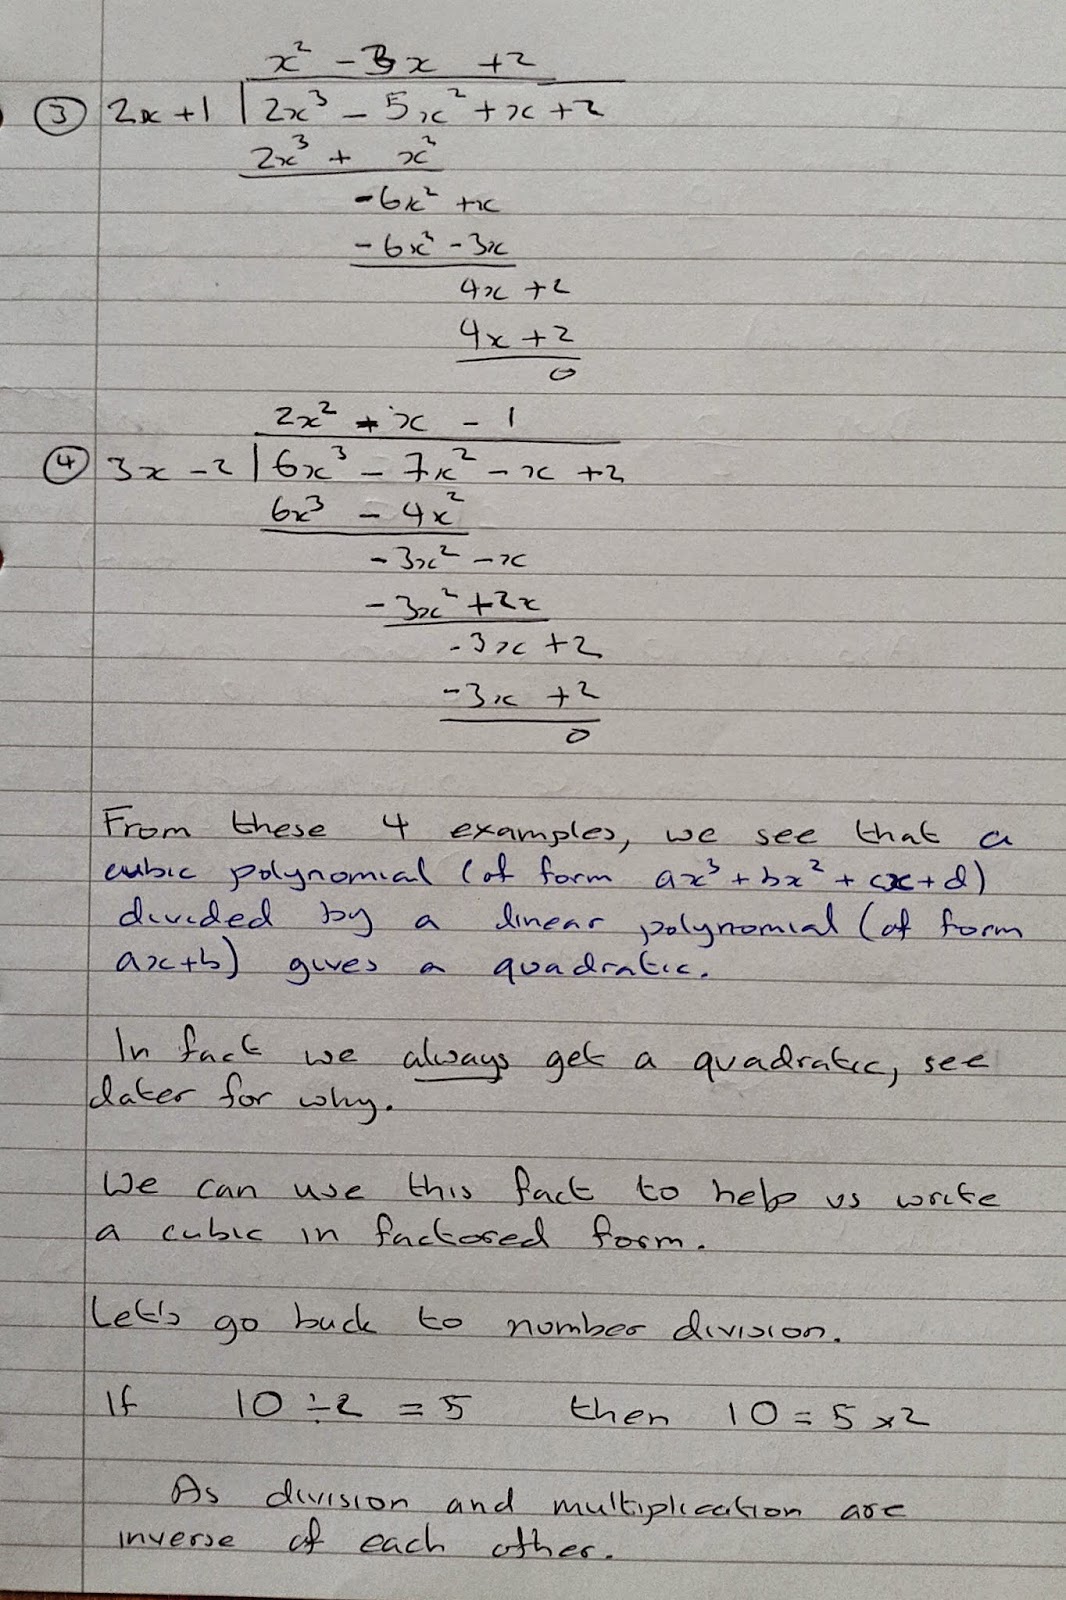 x² - 3x + 2
③ 2x + 1 | 2x³ - 5x² + x + 2
2x³ + x²
-6x² + x
-6x² - 3x
4x + 2
4x + 2
0
2x² - x - 1
④ 3x - 2 | 6x³ - 7x² - x + 2
6x³ - 4x²
-3x² - x
-3x² + 2x
-3x + 2
-3x + 2
0
From these 4 examples, we see that a
cubic polynomial (of form ax³ + bx² + cx + d)
divided by a linear polynomial (of form
ax + b) gives a quadratic.
In fact we always get a quadratic, see
later for why.
We can use this fact to help us write
a cubic in factored form.
Let's go back to number division.
If 10 ÷ 2 = 5 then 10 = 5 × 2
As division and multiplication are
inverse of each other.